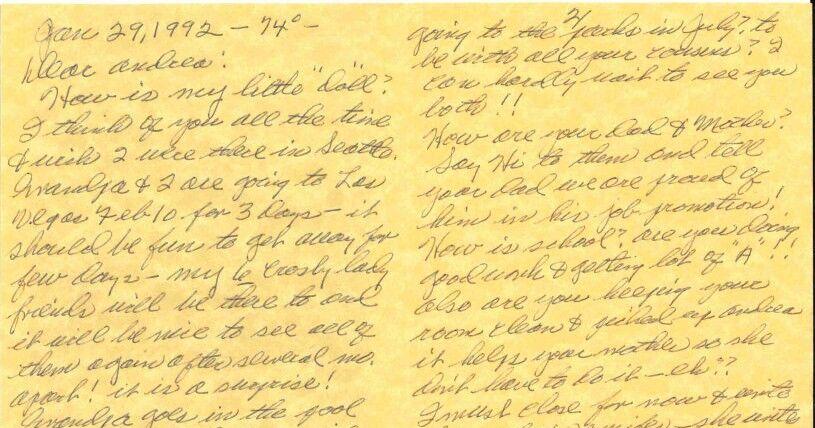 Jan 29, 1992 - 74° -
Dear Andrea:
How is my little "Doll"?
I think of you all the time
& wish I were there in Seattle.
Grandpa & I are going to Las
Vegas Feb 10 for 3 days - it
should be fun to get away for
few days - my 6 Crosby lady
friends will be there to and
it will be nice to see all of
them again after several mo.
apart! it is a surprise!
Grandpa goes in the pool
going to the in July? to
be with all your cousins? I
can hardly wait to see you
both!!
How are your Dad & Mother?
Say Hi to them and tell
your Dad we are proud of
him in his job promotion!
How is school? are you doing
good work & getting lot of "A"!!
also are you keeping your
room clean & picked up Andrea
it helps your mother so she
don't have to do it - eh??
I must close for now & write
she write